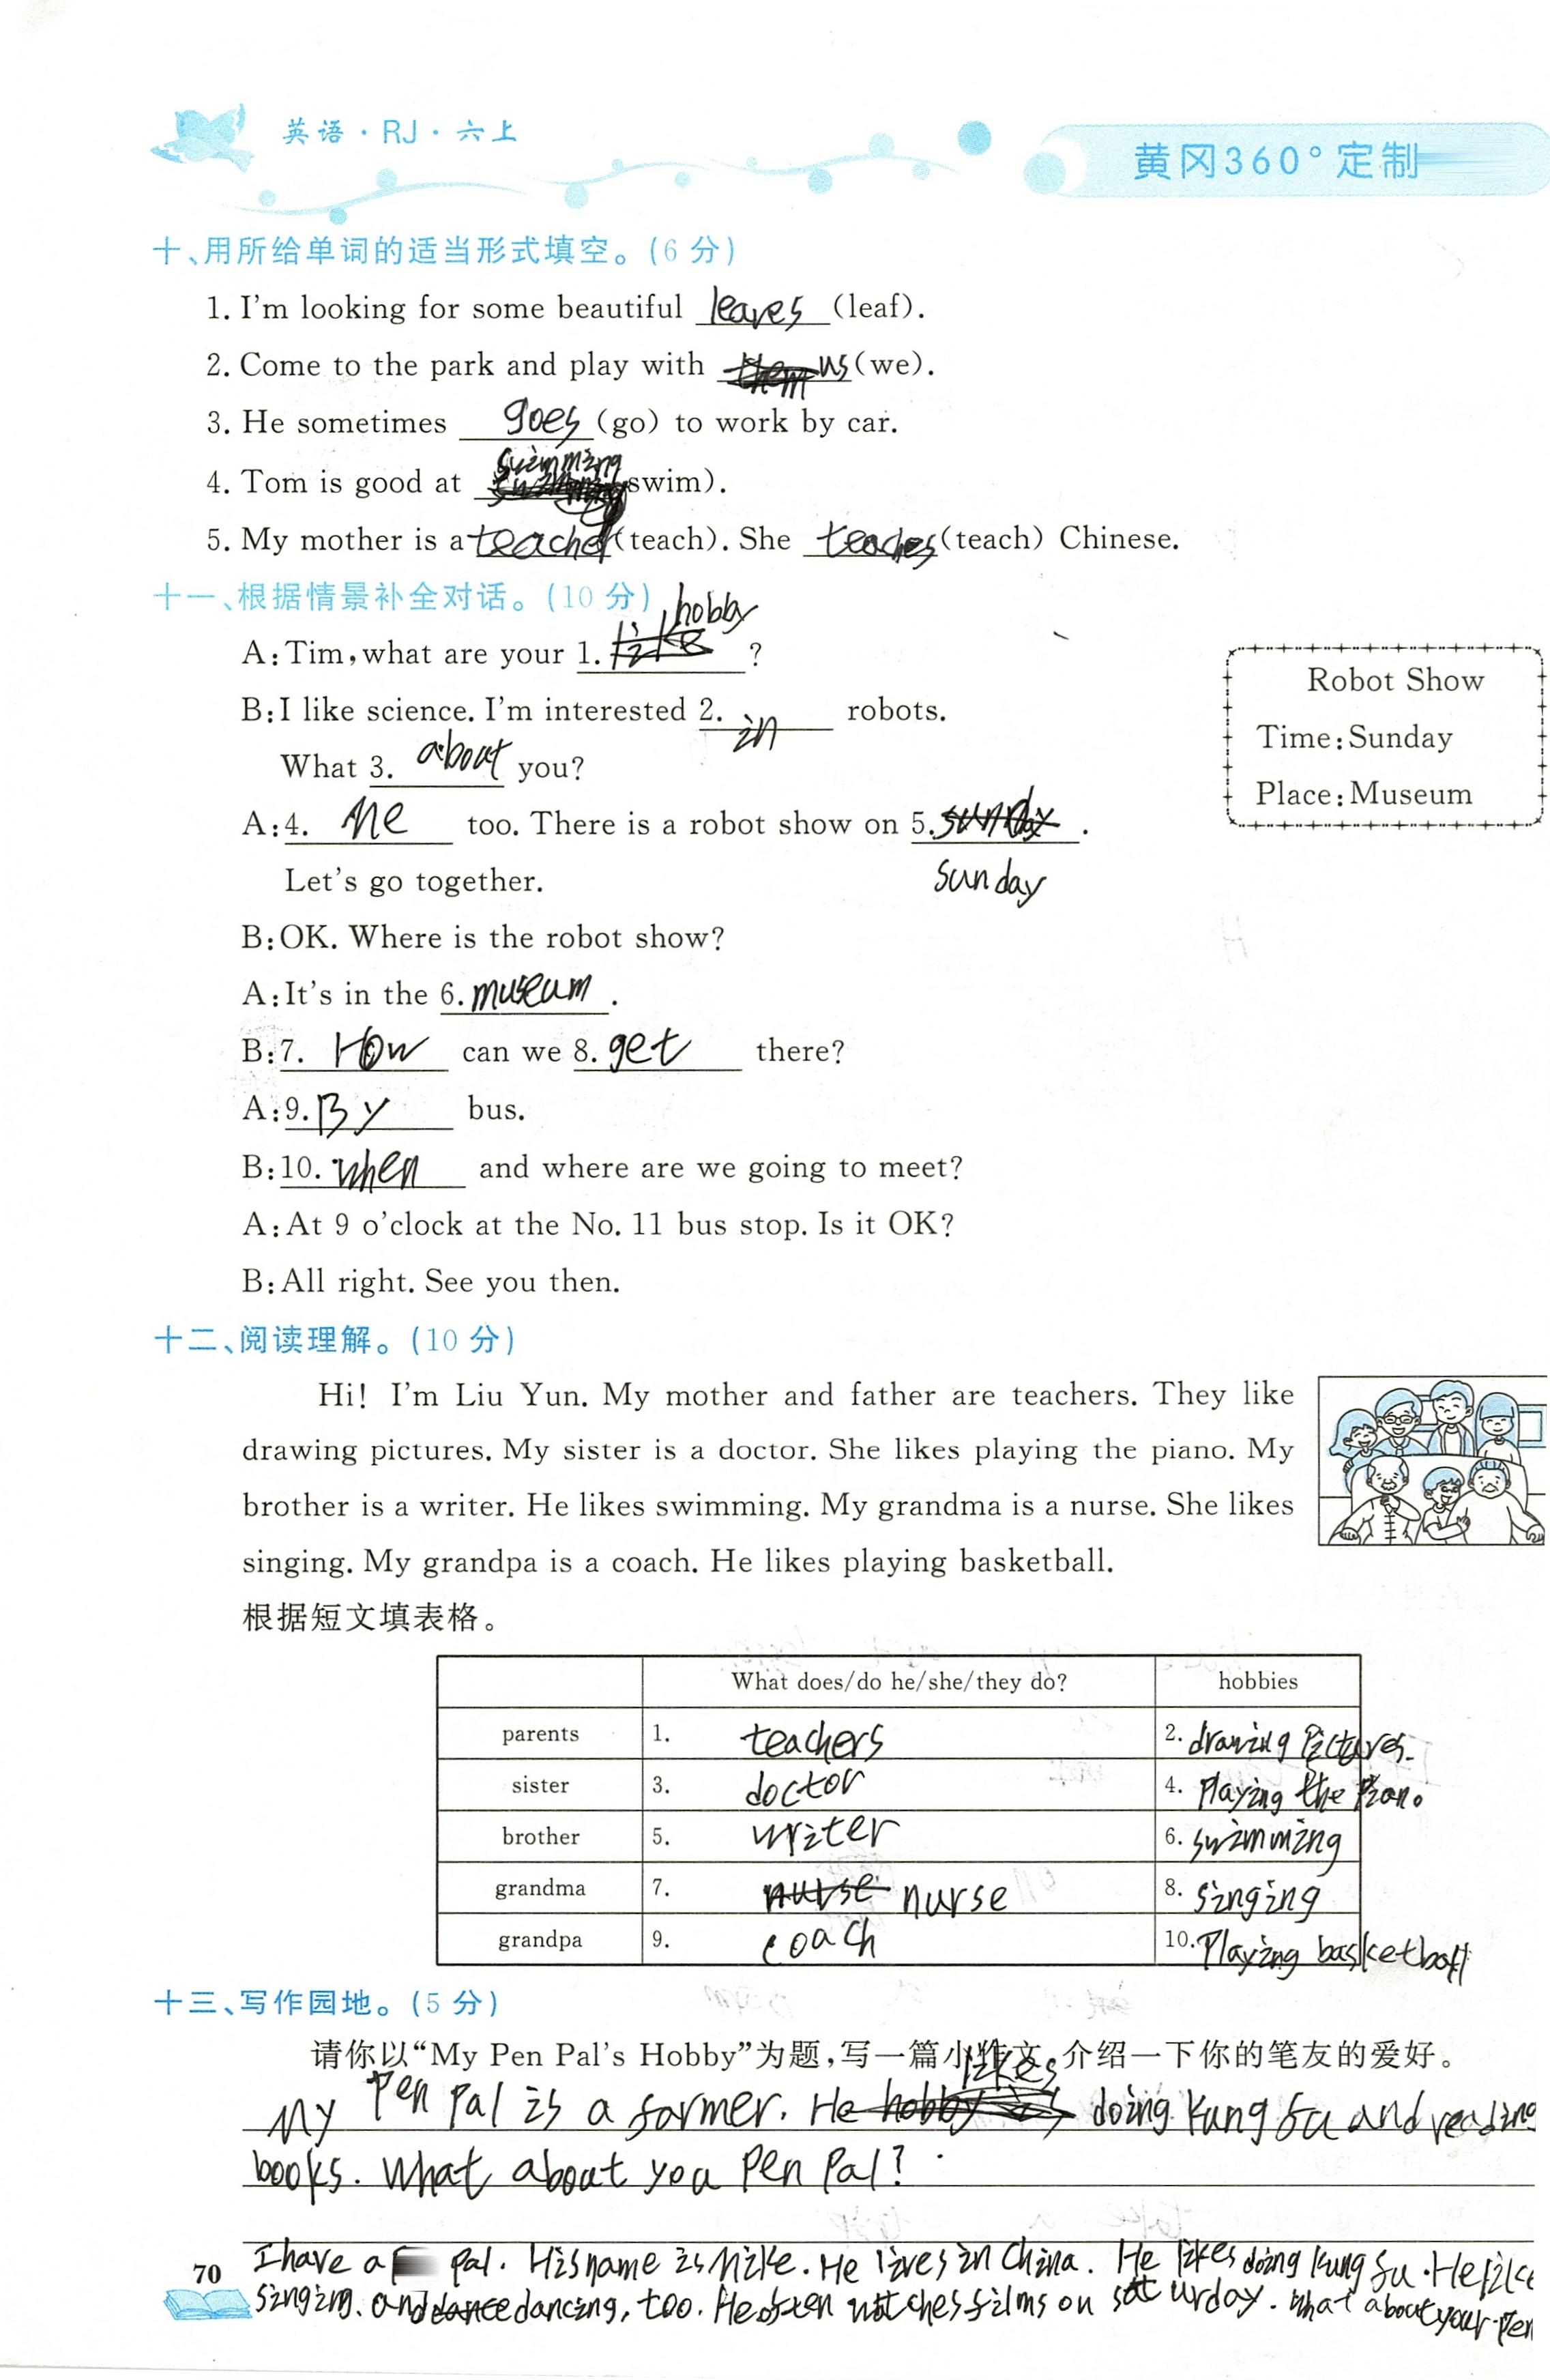 英语·RJ·六上
黄冈360°定制
十、用所给单词的适当形式填空。(6 分)
1. I'm looking for some beautiful leaves (leaf).
2. Come to the park and play with them us (we).
3. He sometimes goes (go) to work by car.
swimming
4. Tom is good at swim).
5. My mother is a teacher (teach). She teaches (teach) Chinese.
十一、根据情景补全对话。(10 分)
hobby
A: Tim, what are your 1. like ?
B: I like science. I'm interested 2. in robots.
What 3. about you?
A: 4. Me too. There is a robot show on 5. sunday .
Let's go together.
sunday
Robot Show
Time: Sunday
Place: Museum
B: OK. Where is the robot show?
A: It's in the 6. museum .
B: 7. How can we 8. get there?
A: 9. By bus.
B: 10. when and where are we going to meet?
A: At 9 o'clock at the No. 11 bus stop. Is it OK?
B: All right. See you then.
十二、阅读理解。(10 分)
Hi! I'm Liu Yun. My mother and father are teachers. They like
drawing pictures. My sister is a doctor. She likes playing the piano. My
brother is a writer. He likes swimming. My grandma is a nurse. She likes
singing. My grandpa is a coach. He likes playing basketball.
根据短文填表格。
What does/do he/she/they do? hobbies
parents 1. teachers 2. drawing Pictures.
sister 3. doctor 4. Playing the Piano
brother 5. writer 6. swimming
grandma 7. nurse nurse 8. singing
grandpa 9. coach 10. Playing basketball
十三、写作园地。(5 分)
请你以“My Pen Pal's Hobby”为题,写一篇小作文,介绍一下你的笔友的爱好。
likes
My Pen Pal is a farmer. He hobby is doing kung fu and reading
books. What about you Pen Pal?
I have a pal. His name is Mike. He lives in China. He likes doing kung fu. He like
singing. and dance dancing, too. He often watches films on saturday. What about your Pen
70